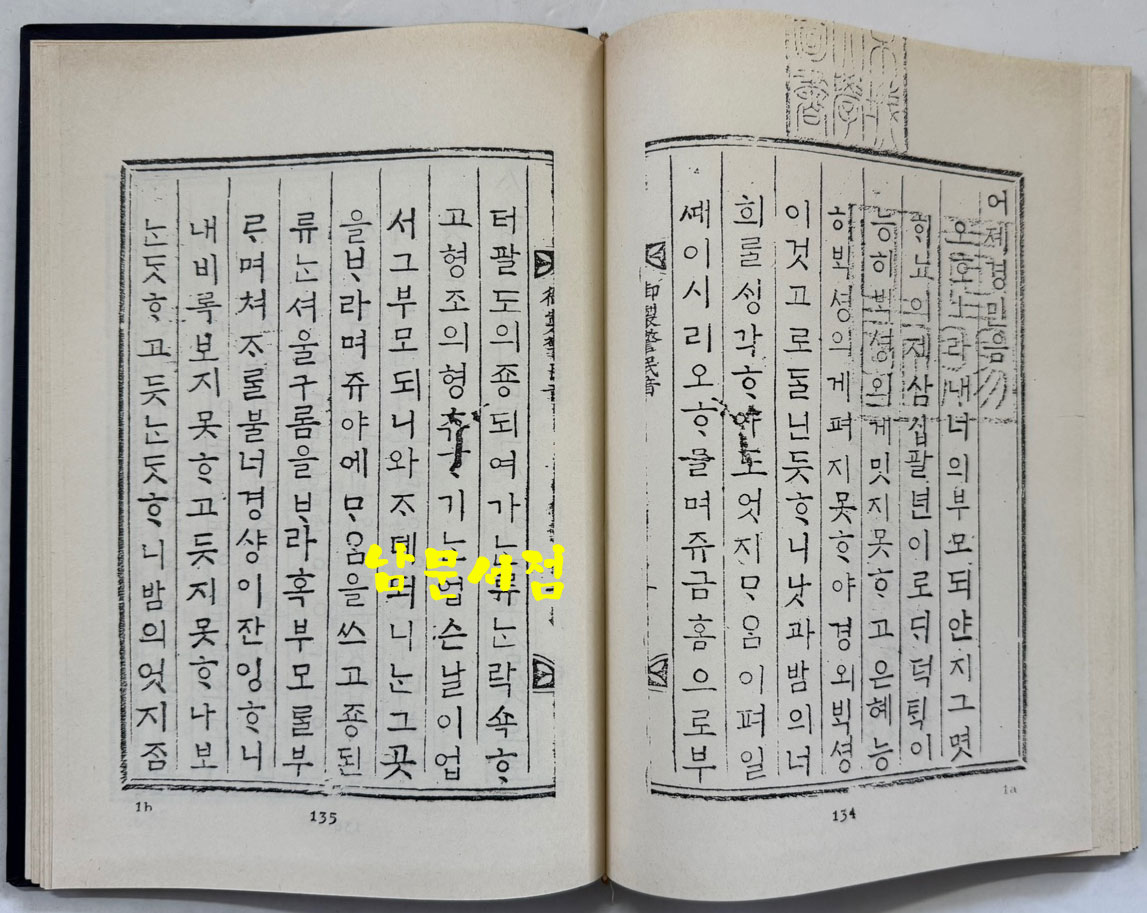 어졔경민음
오호ㅣ라내너의부모되얀지그몃
ᄒᆡ뇨의제삼십팔년이로ᄃᆡ덕ᄐᆡᆨ이
능히ᄇᆡᆨ셩의게밋지못ᄒᆞ고은혜능
히ᄇᆡᆨ셩의게펴지못ᄒᆞ야경외ᄇᆡᆨ셩
이것고로둘닌듯ᄒᆞ니낫과밤의너
희ᄅᆞᆯᄉᆡᆼ각ᄒᆞ야도엇지ᄆᆞᄋᆞᆷ이펴일
ᄶᅦ이시리오ᄒᆞᄆᆞᆯ며쥬금홈으로부
御製警民音
1a
134
터팔도의죵되여가ᄂᆞᆫ류ᄂᆞᆫ락쇽ᄒᆞ
고형조의형츄기ᄂᆞᆫ업슨날이업
서그부모되니와ᄌᆞ뎨며니ᄂᆞᆫ그곳
을ᄇᆞ라며쥬야에ᄆᆞᄋᆞᆷ을쓰고죵된
류ᄂᆞᆫ셔울구룸을ᄇᆞ라혹부모ᄅᆞᆯ부
ᄅᆞ며쳐ᄌᆞᄅᆞᆯ불너경샹이잔잉ᄒᆞ니
내비록보지못ᄒᆞ고듯지못ᄒᆞ나보
ᄂᆞᆫ듯ᄒᆞ고듯ᄂᆞᆫ듯ᄒᆞ니밤의엇지ᄌᆞᆷ
1b
135
남문서점